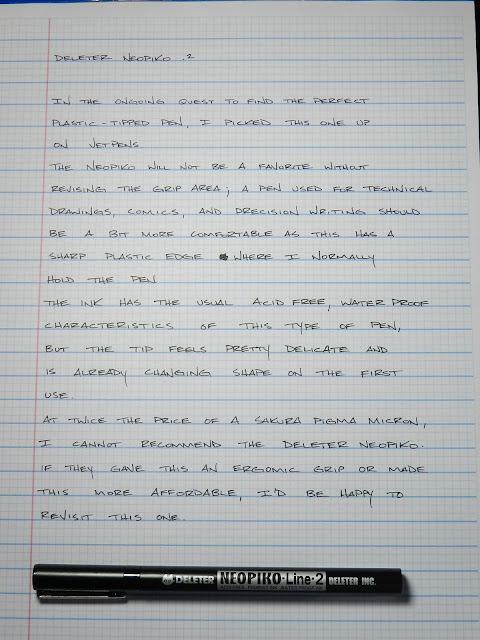 DELETER NEOPIKO .2
IN THE ONGOING QUEST TO FIND THE PERFECT
PLASTIC-TIPPED PEN, I PICKED THIS ONE UP
ON JETPENS.
THE NEOPIKO WILL NOT BE A FAVORITE WITHOUT
REVISING THE GRIP AREA; A PEN USED FOR TECHNICAL
DRAWINGS, COMICS, AND PRECISION WRITING SHOULD
BE A BIT MORE COMFORTABLE AS THIS HAS A
SHARP PLASTIC EDGE WHERE I NORMALLY
HOLD THE PEN
THE INK HAS THE USUAL ACID FREE, WATER PROOF
CHARACTERISTICS OF THIS TYPE OF PEN,
BUT THE TIP FEELS PRETTY DELICATE AND
IS ALREADY CHANGING SHAPE ON THE FIRST
USE.
AT TWICE THE PRICE OF A SAKURA PIGMA MICRON,
I CANNOT RECOMMEND THE DELETER NEOPIKO.
IF THEY GAVE THIS AN ERGOMIC GRIP OR MADE
THIS MORE AFFORDABLE, I'D BE HAPPY TO
REVISIT THIS ONE.
DELETER NEOPIKO-Line-2 DELETER INC.